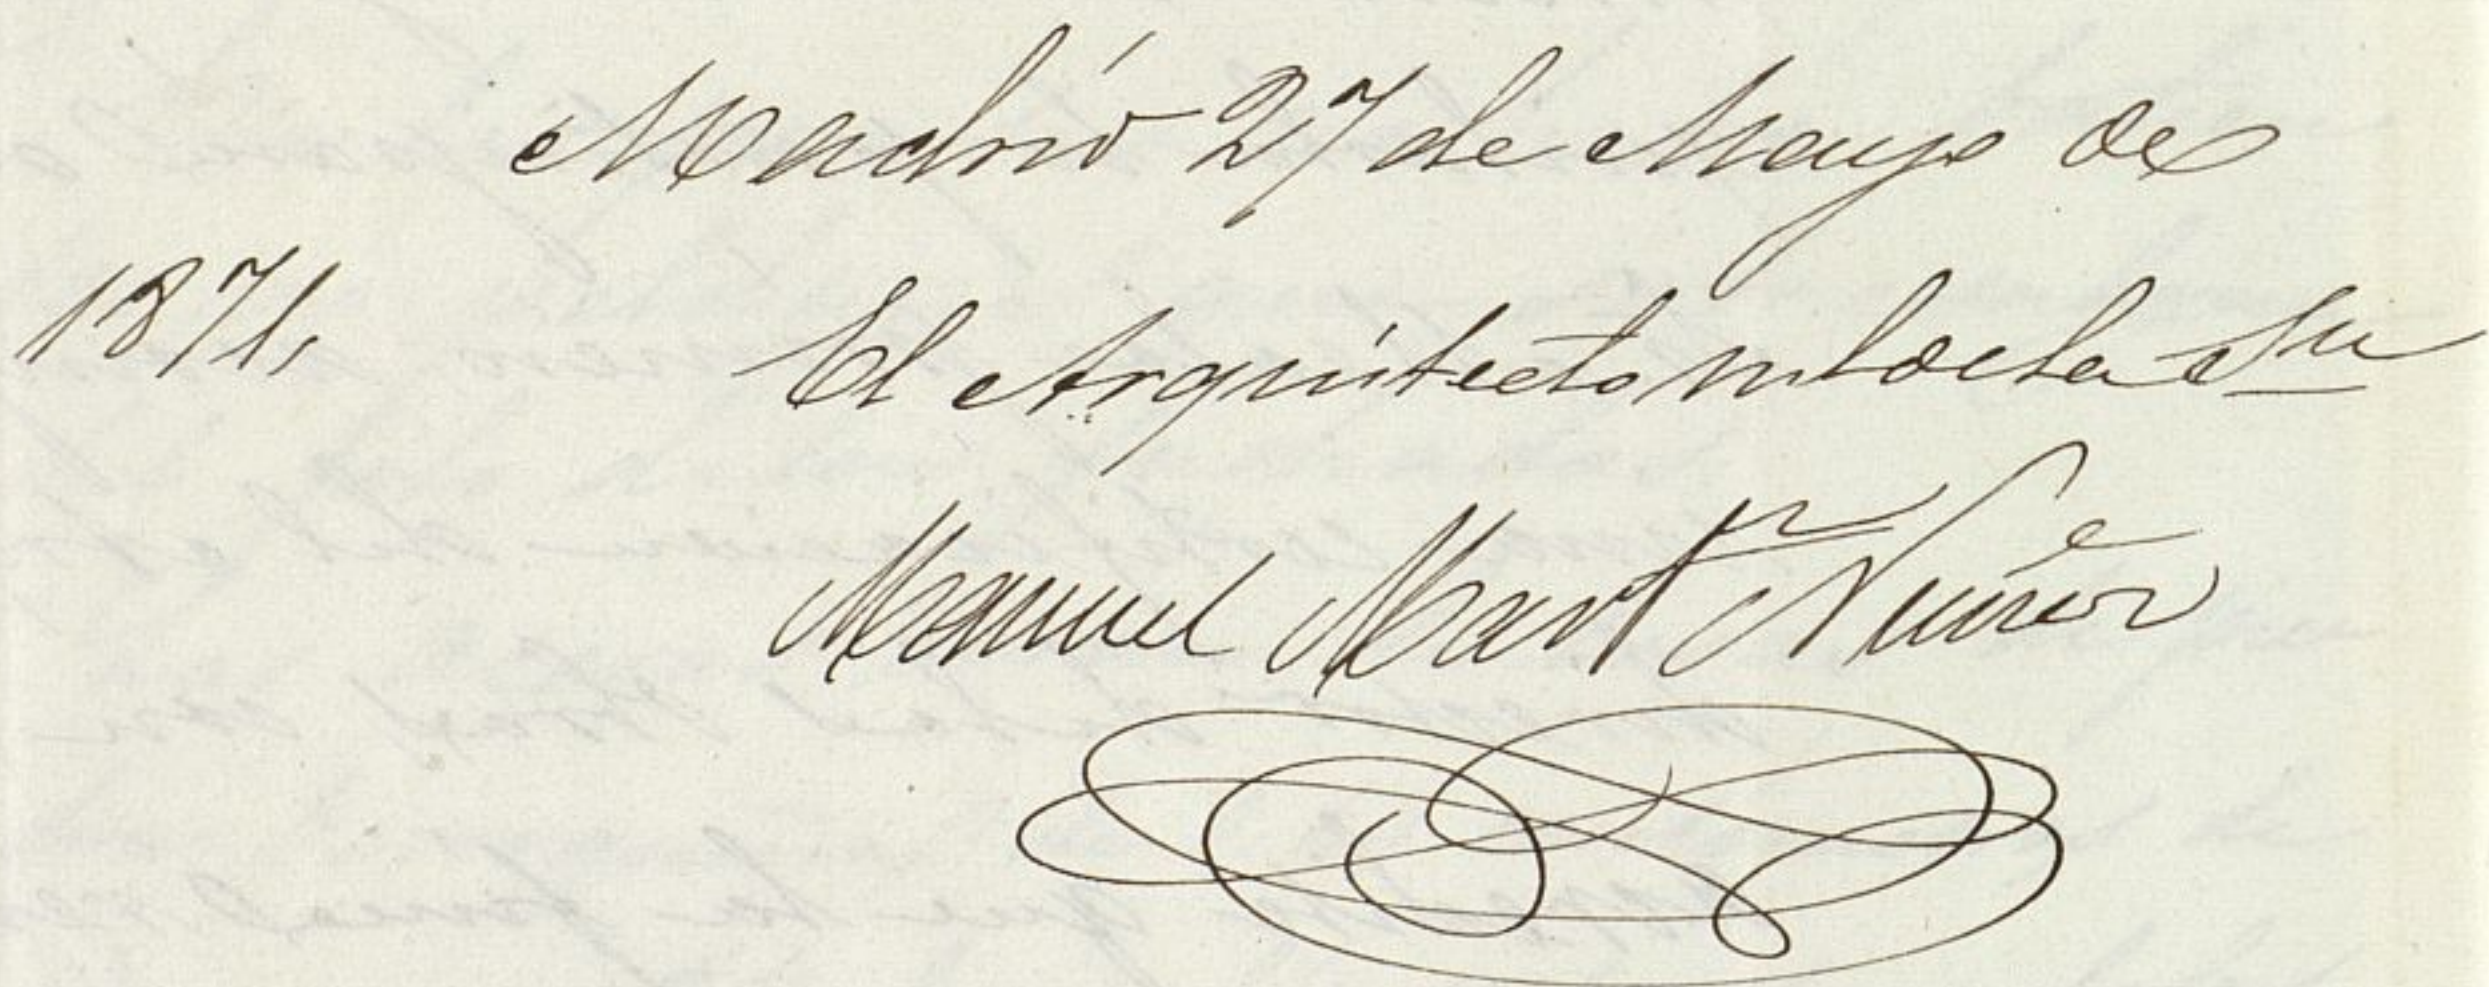 Madrid 27 de Mayo de
1871.
El Arquitecto de la
Manuel Martn Nuñez